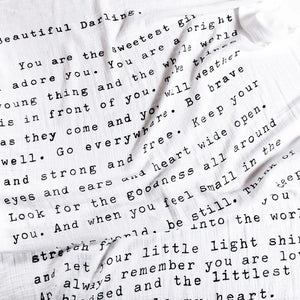 Beautiful Darling.
You are the sweetest gi
I adore you. You are a bright
young thing and the whole world
is in front of you. Take things
as they come and you will weather
well. Go everywhere. Be brave
and strong and free. Keep your
eyes and ears and heart wide open.
Look for the goodness all around
you. And when you feel small in the
world, be still. Think of
stretch into the
and let your little light shin
always remember you are lo
blessed and the littlest
my heart.